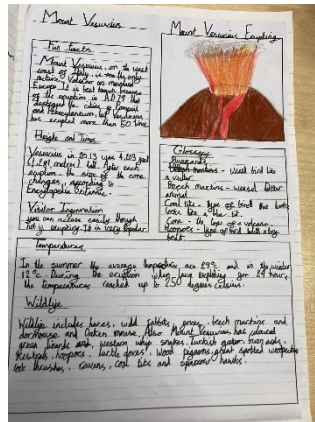 Mount Vesuvius
Fun facts
Mount Vesuvius, on the west
coast of Italy, is now the only
active Volcano on mainland
Europe. It is best known because
of the eruption in AD 79 that
destroyed the cities of Pompeii
and Herculaneum, but Vesuvius
has erupted more than 50 times
Height and Times
Vesuvius in 2013 was 4,203 feet
(1,281 metres) tall. After each
eruption, the size of the cone
changes, according to
Encyclopedia Britannica.
Visitor Information
you can access easily though
not if erupting. It is very popular
Mount Vesuvius Erupting
Glossary
Buzzards
small bird like
a vulture
Beech martine - weasel like
animal
Coal tits - type of bird that looks
looks like a blue tit.
Cone - the top of a volcano
Hoopoes - type of bird with a long
beak.
Temperatures
In the summer the average temperature are 29°c and in the winter
12°c. During the eruption when lava exploding for 24 hours,
the temperatures reached up to 250 degrees celsius.
Wildlife
Wildlife includes hares, wild rabbits, foxes, beech martine and
dormouse and Oaken mouse. Also Mount Vesuvius has coloured
green lizards and, western whip snakes, Turkish gekos, buzzards,
Kestrals, hoopoes, turtle doves, wood pigeons, great spotted woodpecker
rock thrushes, ravens, coal tits and sparrow hawks.